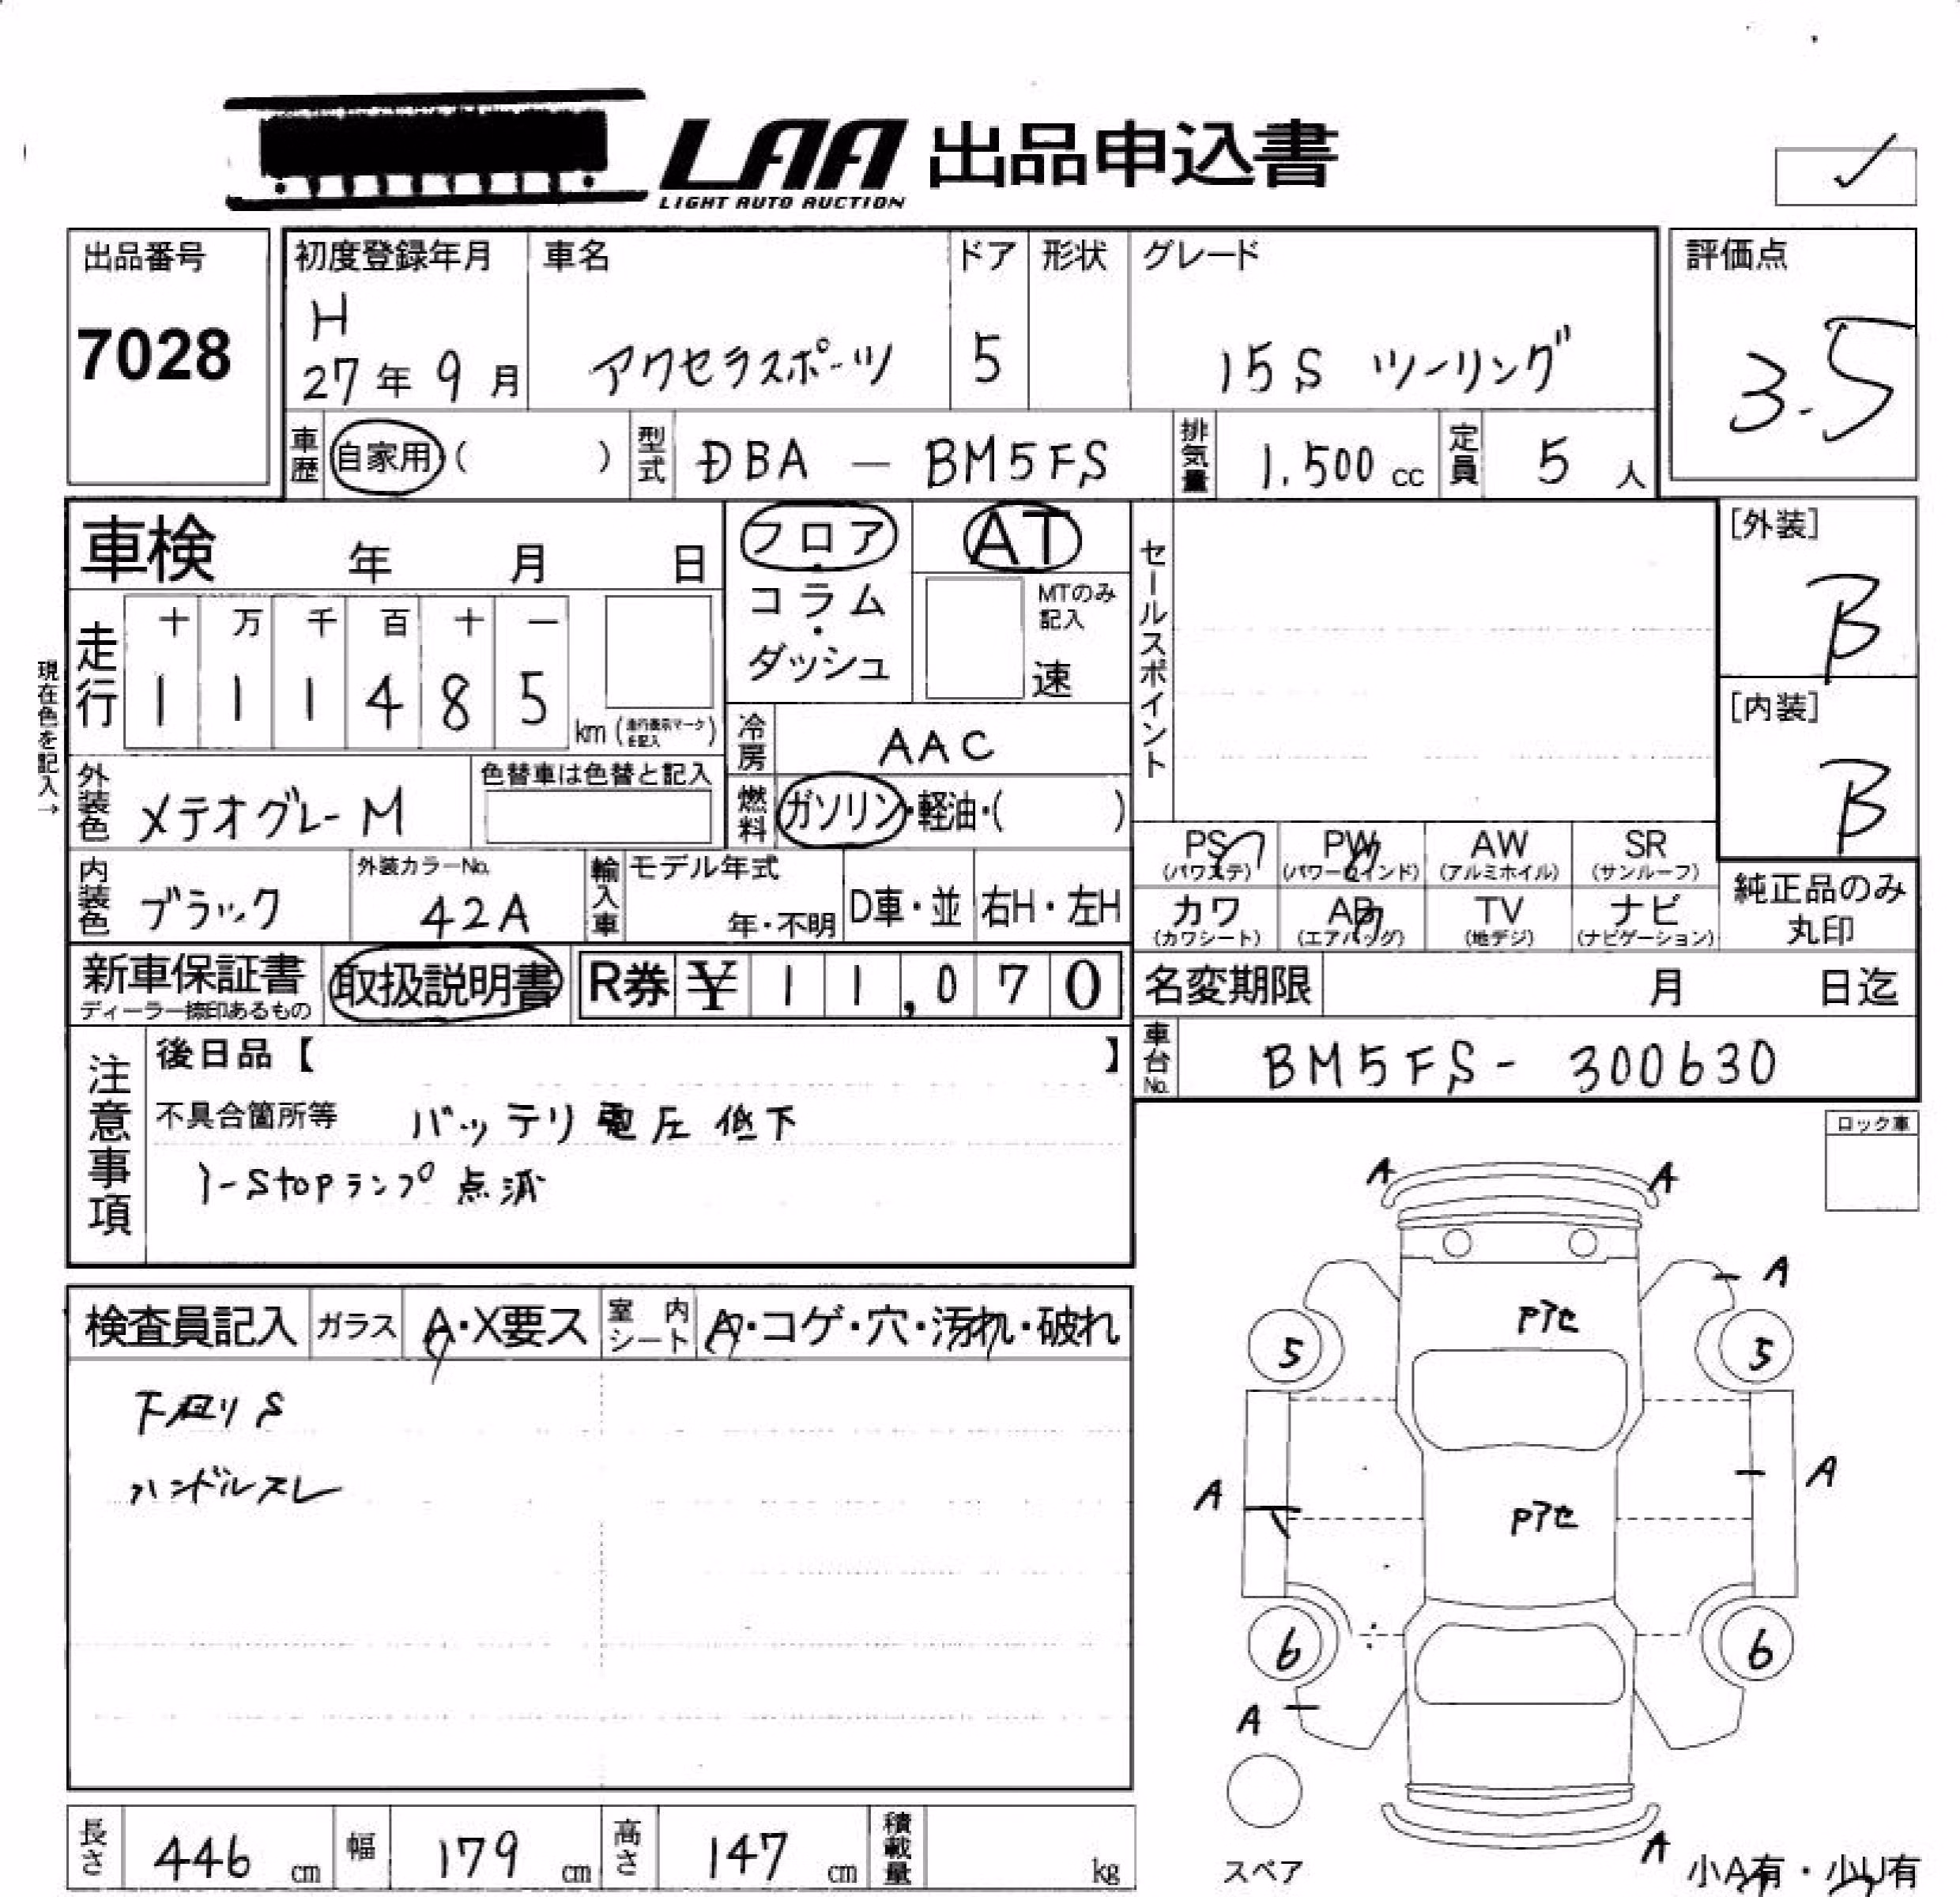 LAA 出品申込書
LIGHT AUTO AUCTION
出品番号
7028
初度登録年月 車名 ドア 形状 グレード
H
27年 9月 アクセラスポーツ 5 15S ツーリング
評価点
3.5
車歴 自家用 ( ) 型式 DBA — BM5FS 排気量 1.500 cc 定員 5 人
車検 年 月 日
フロア・コラム・ダッシュ
AT
MTのみ記入
速
セールスポイント
[外装]
B
[内装]
B
現在色を記入→
走行 十 万 千 百 十 一
1 1 1 4 8 5 km (走行表示マークを記入)
冷房 AAC
外装色 メテオグレーM 色替車は色替と記入
燃料 ガソリン・軽油・( )
内装色 ブラック 外装カラーNo. 42A 輸入車 モデル年式 年・不明 D車・並 右H・左H
PS (パワステ) PW (パワーウインド) AW (アルミホイル) SR (サンルーフ)
カワ (カワシート) AB (エアバッグ) TV (地デジ) ナビ (ナビゲーション)
純正品のみ丸印
新車保証書 ディーラー捺印あるもの 取扱説明書 R券 ¥ 11,070
名変期限 月 日迄
車台No. BM5FS- 300630
注意事項
後日品【 】
不具合箇所等 バッテリ電圧低下
i-Stopランプ点滅
ロック車
検査員記入 ガラス A・X要ス 室内シート A・コゲ・穴・汚れ・破れ
下回りS
ハンドルスレ
A A
A
Pアセ
5 5
A A
Pアセ
6 6
A
スペア
A
小A有・少U有
長さ 446 cm 幅 179 cm 高さ 147 cm 積載量 kg